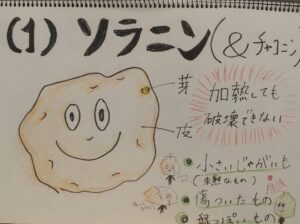 (1) ソラニン(&チャコニン)
芽
皮
加熱しても
破壊できない
小さいじゃがいも
(未熟なもの)
傷ついたもの
緑っぽいもの